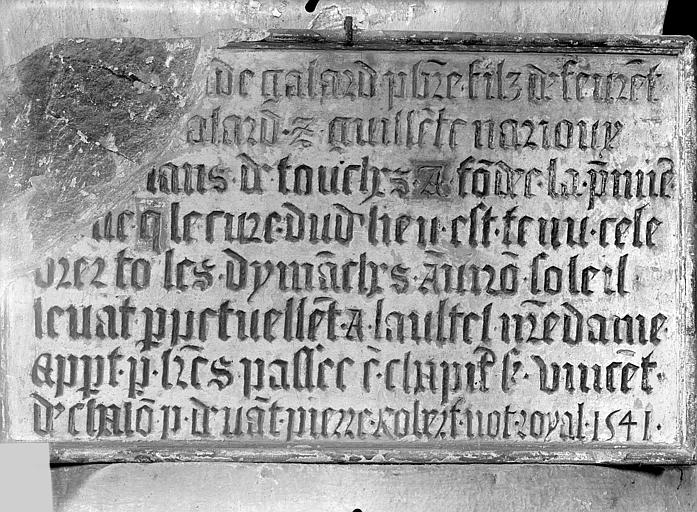 de galard pbr̄e filz de feu rēt
alard · z · guillēte narioux
ians · de touches · A fōdee · la · p̄mie
que · q̄ le cure · dud · lieu · est · tenu · cele
brer to les · dymāches · A · nrō · soleil
leuāt ppetuellem̄t · A · laultel nr̄e dame ·
Appt · p · lr̄es passee ē · chapit̄ s · vincēt ·
de chalō p · deuāt · pierre · robert · not · royal · 1541 ·